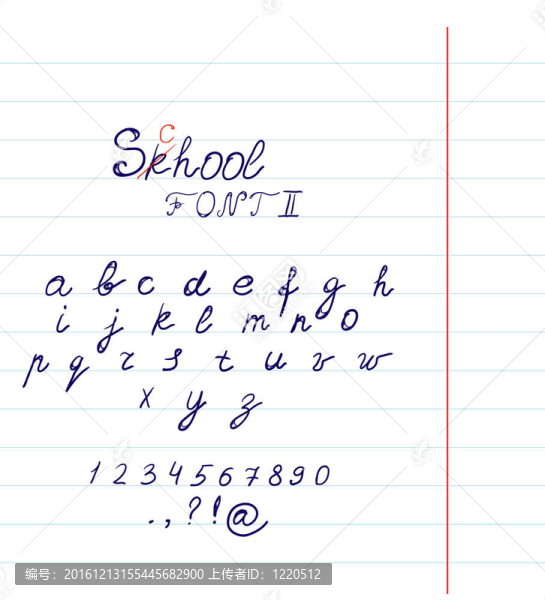 c
Skhool
FONT II
a b c d e f g h
i j k l m n o
p q r s t u v w
x y z
1 2 3 4 5 6 7 8 9 0
. , ? ! @
编号：20161213155445682900 上传者ID：1220512